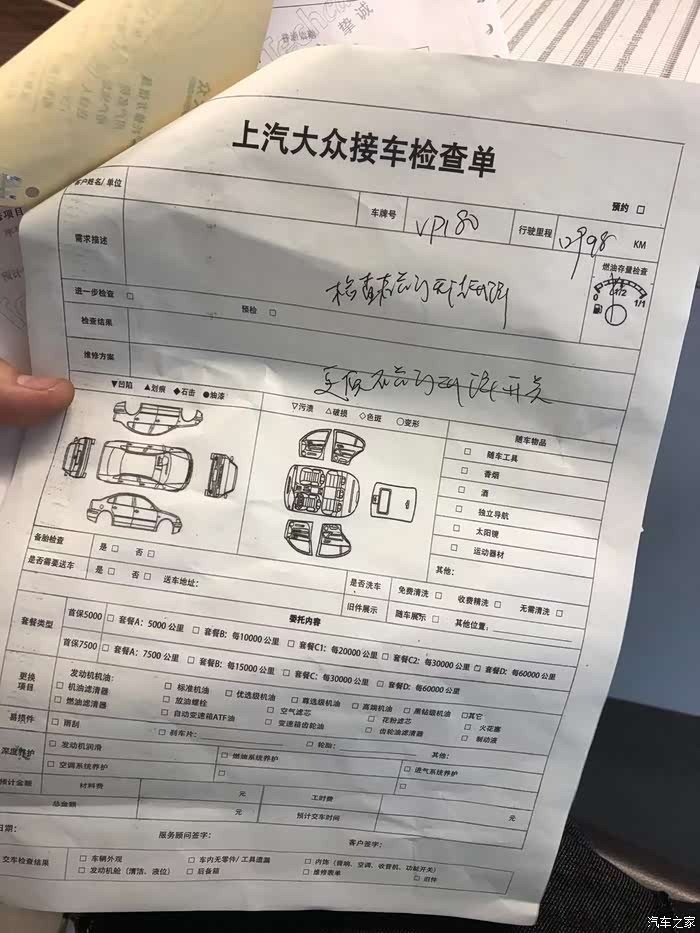 上汽大众接车检查单
预约 □
客户姓名/单位 车牌号 VP180 行驶里程 KM
需求描述 燃油存量检查
0 1/2 1/1
进一步检查 □ 预检 □
检查结果
维修方案 更换 开关
▼凹陷 ▲划痕 ◆石击 ●油漆
▽污渍 △破损 ◇色斑 ○变形
随车物品
□ 随车工具
□ 香烟
□ 酒
□ 独立导航
□ 太阳镜
□ 运动器材
其他:
备胎检查 是 □ 否 □
是否需要送车 是 □ 否 □ 送车地址:
是否洗车 免费清洗 □ 收费精洗 □ 无需清洗 □
旧件展示 随车展示 □ 其他位置:
委托内容
套餐类型
首保5000 □ 套餐A: 5000 公里 □ 套餐B: 每10000 公里 □ 套餐C1: 每20000 公里 □ 套餐C2: 每30000 公里 □ 套餐D: 每60000 公里
首保7500 □ 套餐A: 7500 公里 □ 套餐B: 每15000 公里 □ 套餐C: 每30000 公里 □ 套餐D: 每60000 公里
更换项目
发动机机油: □ 标准机油 □ 优选级机油 □ 尊选级机油 □ 高端机油 □ 黑钻级机油 □其它
□ 机油滤清器 □ 放油螺栓 □ 空气滤芯 □ 花粉滤芯 □ 火花塞
□ 燃油滤清器 □ 自动变速箱ATF油 □ 变速箱齿轮油 □ 齿轮油滤清器 □ 制动液
易损件 □ 雨刮 □ 刹车片: □ 轮胎: 其他:
深度养护 □ 发动机润滑 □ 燃油系统养护 □ 进气系统养护
□ 空调系统养护 □ □
预计金额 材料费 元 工时费 元
总金额 元 预计交车时间
日期: 服务顾问签字: 客户签字:
交车检查结果 □ 车辆外观 □ 车内无零件/工具遗漏 □ 内饰(音响、空调、收音机、功能开关)
□ 发动机舱(清洁、液位) □ 后备箱 □ 维修表单 □ 旧件
汽车之家